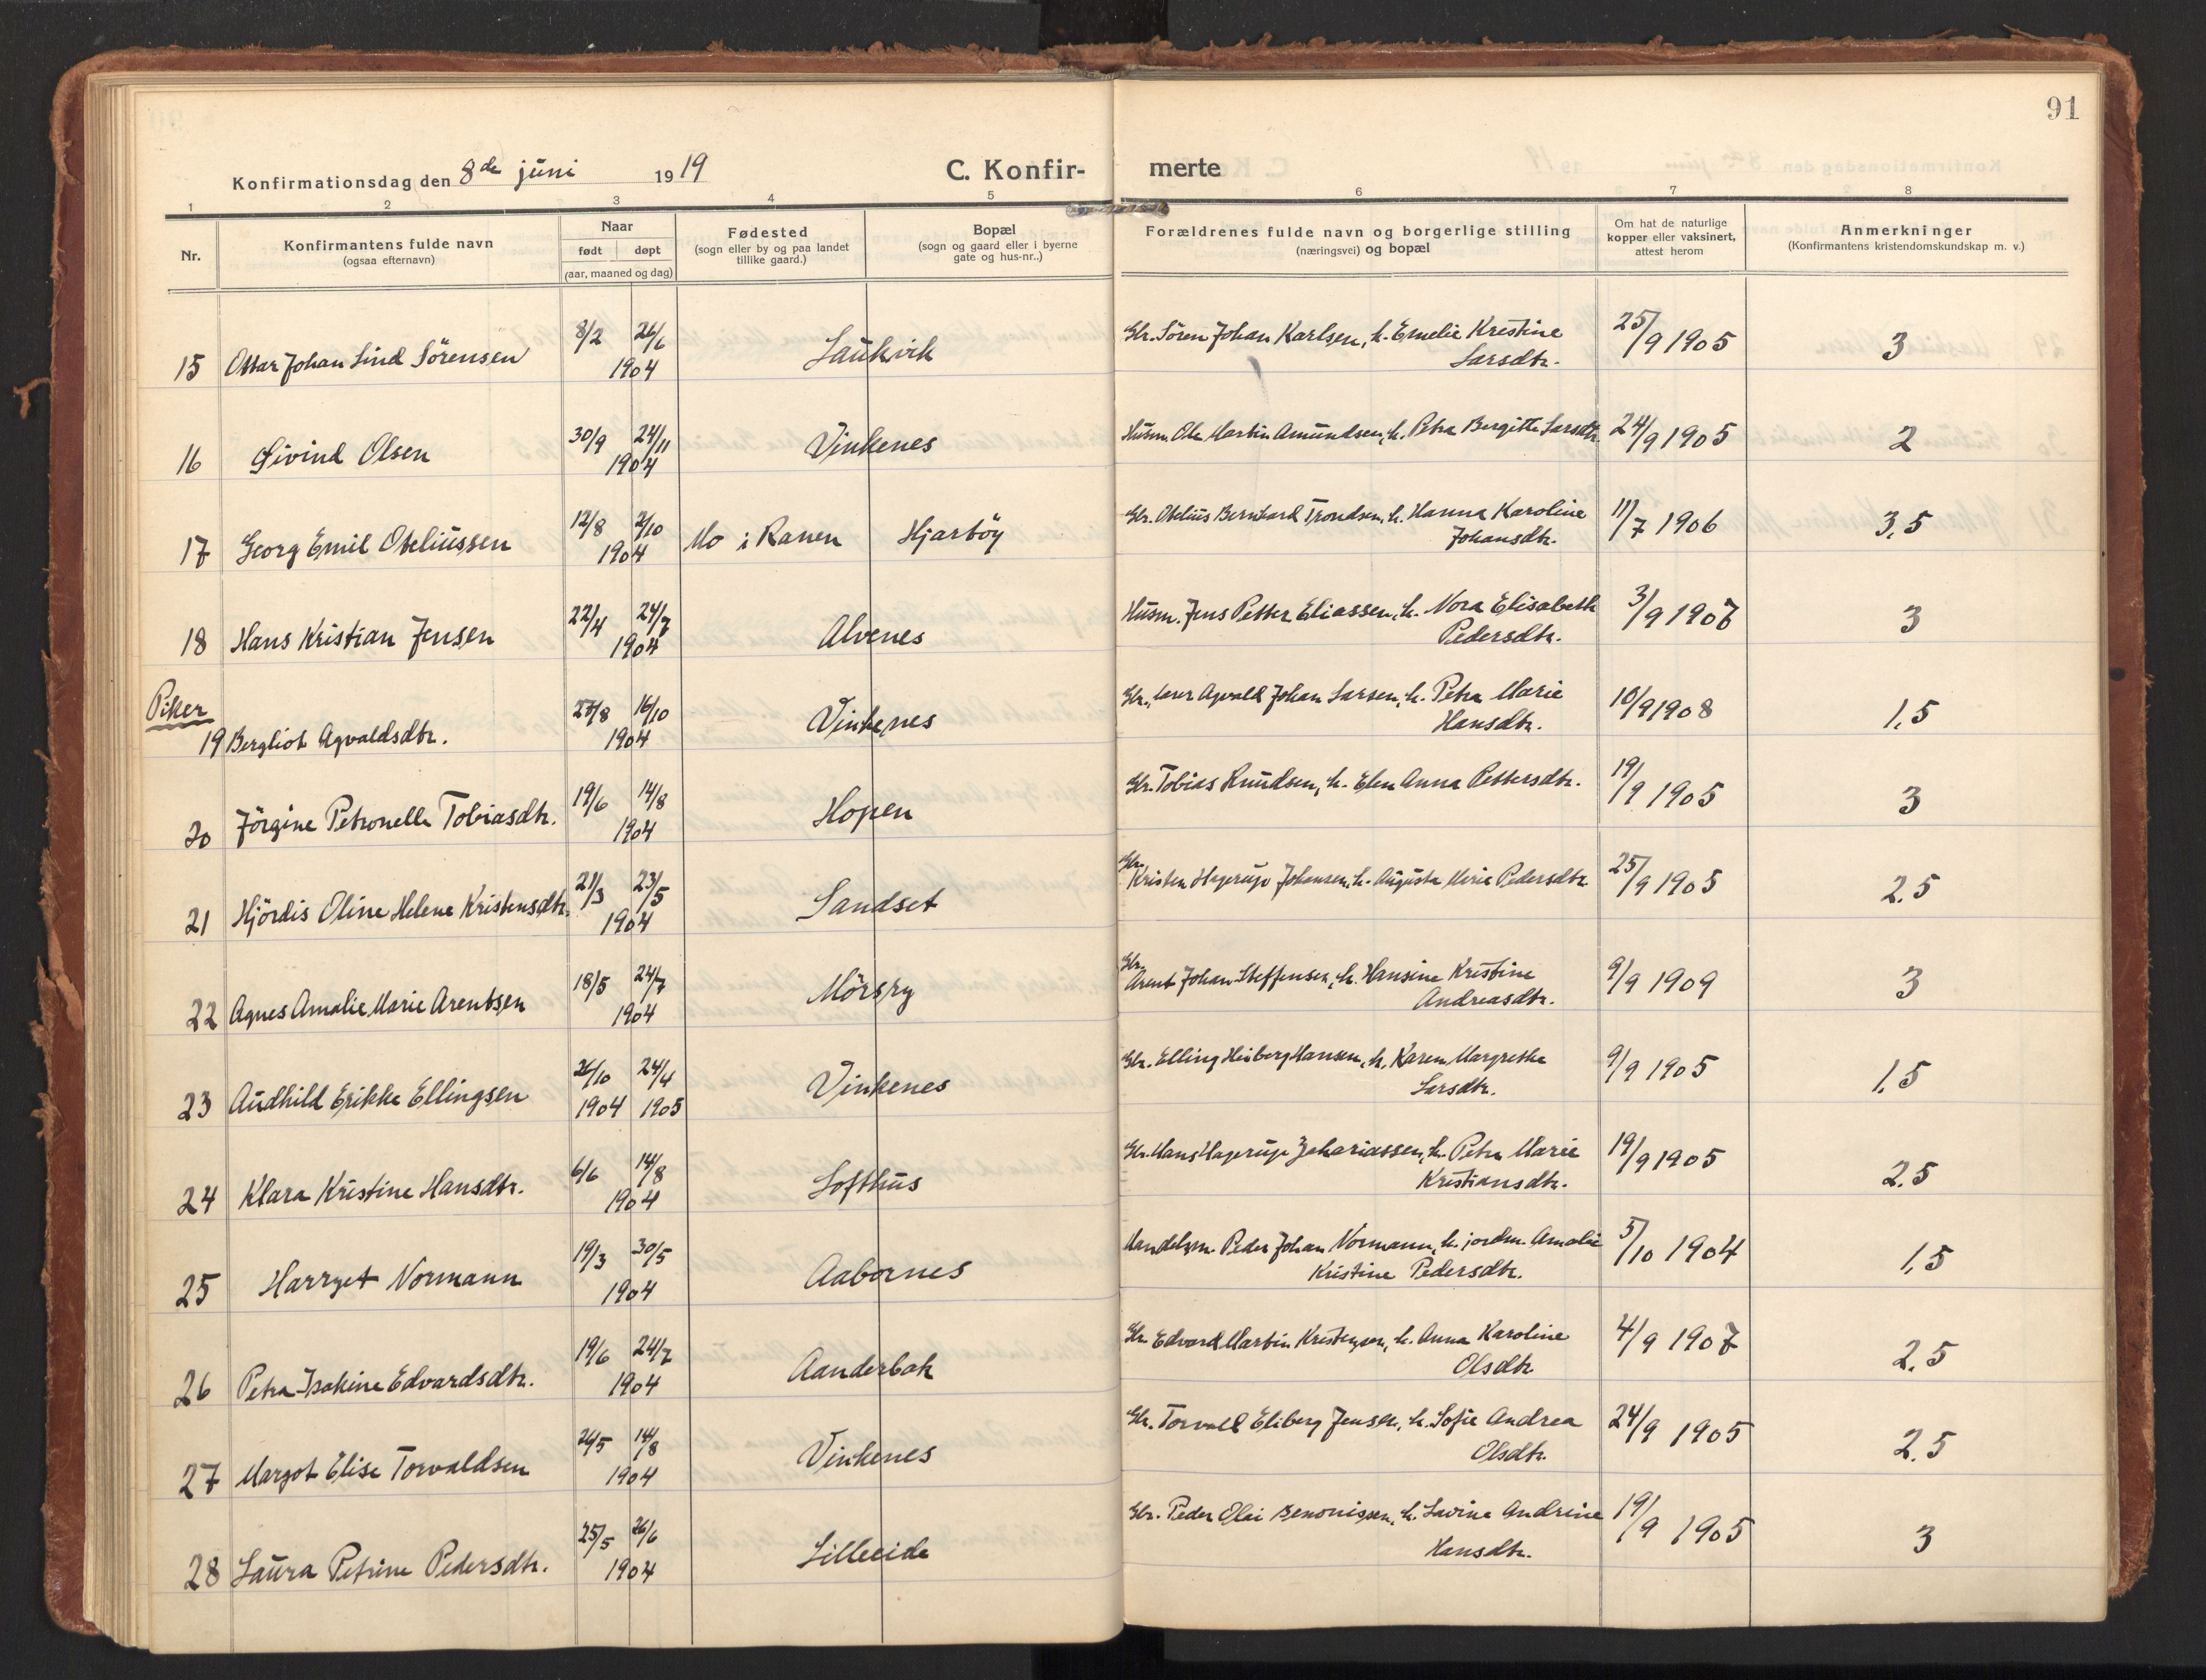 91
Konfirmationsdag den 8de juni 1919 C. Konfirmerte
1 2 3 4 5 6 7 8
Nr.
Konfirmantens fulde navn
(ogsaa efternavn)
Naar
født døpt
(aar, maaned og dag)
Fødested
(sogn eller by og paa landet
tillike gaard.)
Bopæl
(sogn og gaard eller i byerne
gate og hus-nr..)
Forældrenes fulde navn og borgerlige stilling
(næringsvei) og bopæl
Om hat de naturlige
kopper eller vaksinert,
attest herom
Anmerkninger
(Konfirmantens kristendomskundskap m. v.)
15 Ottar Johan Lind Sörensen 8/2 26/6 1904 Laukvik Gbr. Sören Johan Karlsen, h. Emelie Kristine 25/9 1905 3
Larsdtr.
16 Øivind Olsen 30/9 24/11 1904 Vinkenes Husm. Ole Martin Amundsen, h. Petra Bergitte Larsdtr. 24/9 1905 2
17 Georg Emil Obeliussen 12/8 2/10 1904 Mo i Ranen Hjartöy Gbr. Obelius Bernhard Trondsen, h. Hanna Karoline 11/7 1906 3,5
Johansdtr.
18 Hans Kristian Jensen 22/4 24/7 1904 Alvenes Husm. Jens Petter Eliassen, h. Nora Elisabeth 3/9 1907 3
Pedersdtr.
Piker
19 Bergliot Agvaldsdtr. 27/8 16/10 1904 Vinkenes Gbr., lærer Agvald Johan Larsen, h. Petra Marie 10/9 1908 1,5
Hansdtr.
20 Jörgine Petronelle Tobiasdtr. 19/6 14/8 1904 Hopen Gbr. Tobias Knudsen, h. Elen Anna Pettersdtr. 19/9 1905 3
21 Hjördis Oline Helene Kristensdtr. 21/3 23/5 1904 Sandset Gbr. Kristen Hagerup Johansen, h. Augusta Marie Pedersdtr. 25/9 1905 2,5
22 Agnes Amalie Marie Arentsen 18/5 24/7 1904 Mörsry Gbr. Arent Johan Steffensen, h. Hansine Kristine 9/9 1909 3
Andreasdtr.
23 Audhild Erikke Ellingsen 26/10 1904 24/4 1905 Vinkenes Gbr. Elling Heiberg Hansen, h. Karen Margrethe 9/9 1905 1,5
Larsdtr.
24 Klara Kristine Hansdtr. 6/6 14/8 1904 Lofthus Gbr. Hans Hagerup Zakariassen, h. Petra Marie 19/9 1905 2,5
Kristiansdtr.
25 Harryet Normann 19/3 30/5 1904 Aabornes Handelsm. Peder Johan Normann, h. jordm. Amalie 5/10 1904 1,5
Kristine Pedersdtr.
26 Petra Isakine Edvardsdtr. 19/6 24/7 1904 Aanderbak Gbr. Edvard Martin Kristensen, h. Anna Karoline 4/9 1907 2,5
Olsdtr.
27 Margot Elise Torvaldsen 26/5 14/8 1904 Vinkenes Gbr. Torvald Eliberg Jensen, h. Sofie Andrea 24/9 1905 2,5
Olsdtr.
28 Laura Petrine Pedersdtr. 25/5 26/6 1904 Lilleeide Gbr. Peder Olai Benonissen, h. Lavine Andrine 19/9 1905 3
Hansdtr.